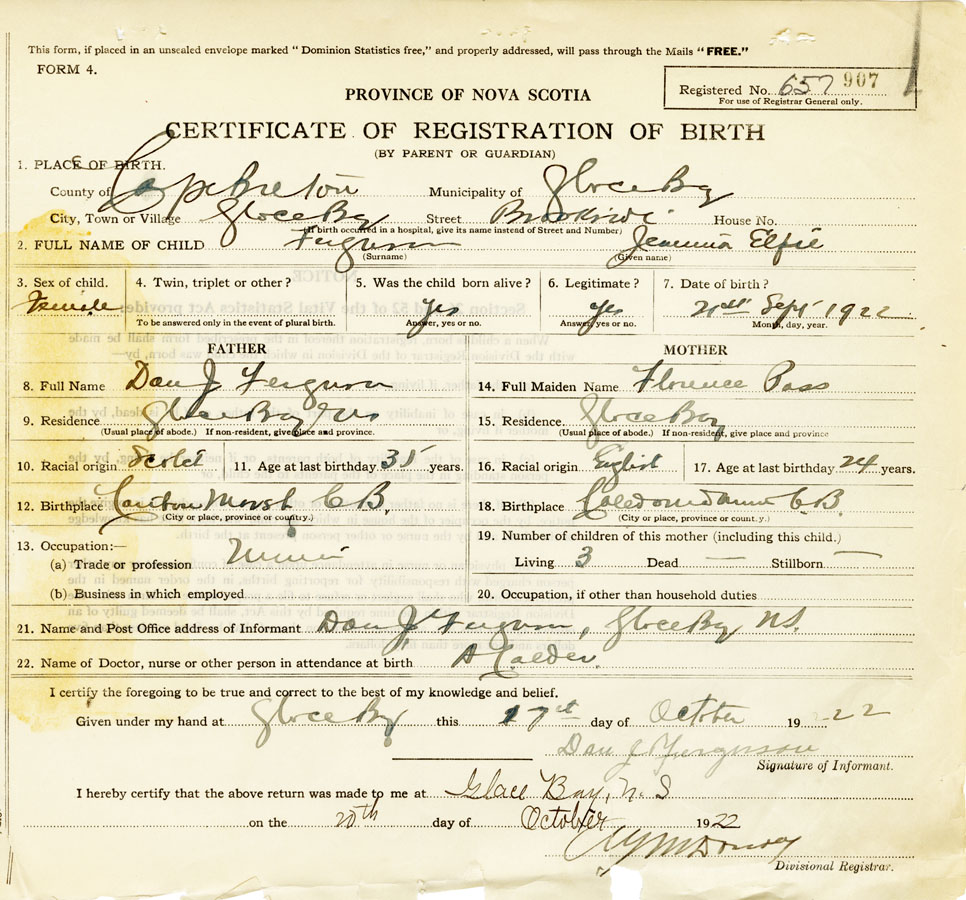 This form, if placed in an unsealed envelope marked "Dominion Statistics free," and properly addressed, will pass through the Mails "FREE."
FORM 4.
Registered No. 657 907
For use of Registrar General only.
PROVINCE OF NOVA SCOTIA
CERTIFICATE OF REGISTRATION OF BIRTH
(BY PARENT OR GUARDIAN)
1. PLACE OF BIRTH.
County of Cape Breton Municipality of Glace Bay
City, Town or Village Glace Bay Street House No.
(If birth occurred in a hospital, give its name instead of Street and Number)
2. FULL NAME OF CHILD Ferguson Jemima Elfie
(Surname) (Given name)
3. Sex of child. 4. Twin, triplet or other? 5. Was the child born alive? 6. Legitimate? 7. Date of birth?
Female Yes Yes Sept 1922
To be answered only in the event of plural birth. Answer, yes or no. Answer, yes or no. Month, day, year.
FATHER MOTHER
8. Full Name Dan J Ferguson 14. Full Maiden Name Florence Pass
9. Residence Glace Bay NS 15. Residence Glace Bay
(Usual place of abode.) If non-resident, give place and province. (Usual place of abode.) If non-resident, give place and province
10. Racial origin Scotch 11. Age at last birthday 35 years. 16. Racial origin English 17. Age at last birthday 24 years.
12. Birthplace Marsh C B. 18. Birthplace C.B.
(City or place, province or country.) (City or place, province or country.)
13. Occupation:— 19. Number of children of this mother (including this child.)
(a) Trade or profession Miner Living 3 Dead — Stillborn —
(b) Business in which employed 20. Occupation, if other than household duties
21. Name and Post Office address of Informant Dan J Ferguson, Glace Bay NS.
22. Name of Doctor, nurse or other person in attendance at birth A Calder.
I certify the foregoing to be true and correct to the best of my knowledge and belief.
Given under my hand at Glace Bay this 17th day of October 19 22
Dan J Fergusson
Signature of Informant.
I hereby certify that the above return was made to me at Glace Bay, N. S
on the 20th day of October 1922
Divisional Registrar.